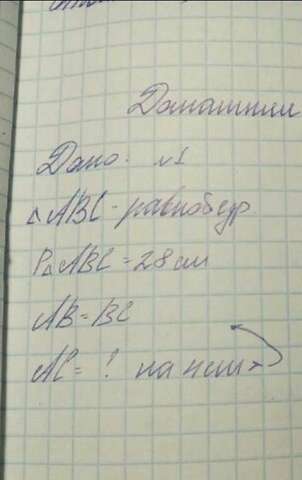 Домашнии
Дано: №1
△ABC - равнобедр.
P△ABC = 28 см
AB = BC
AC = ! на